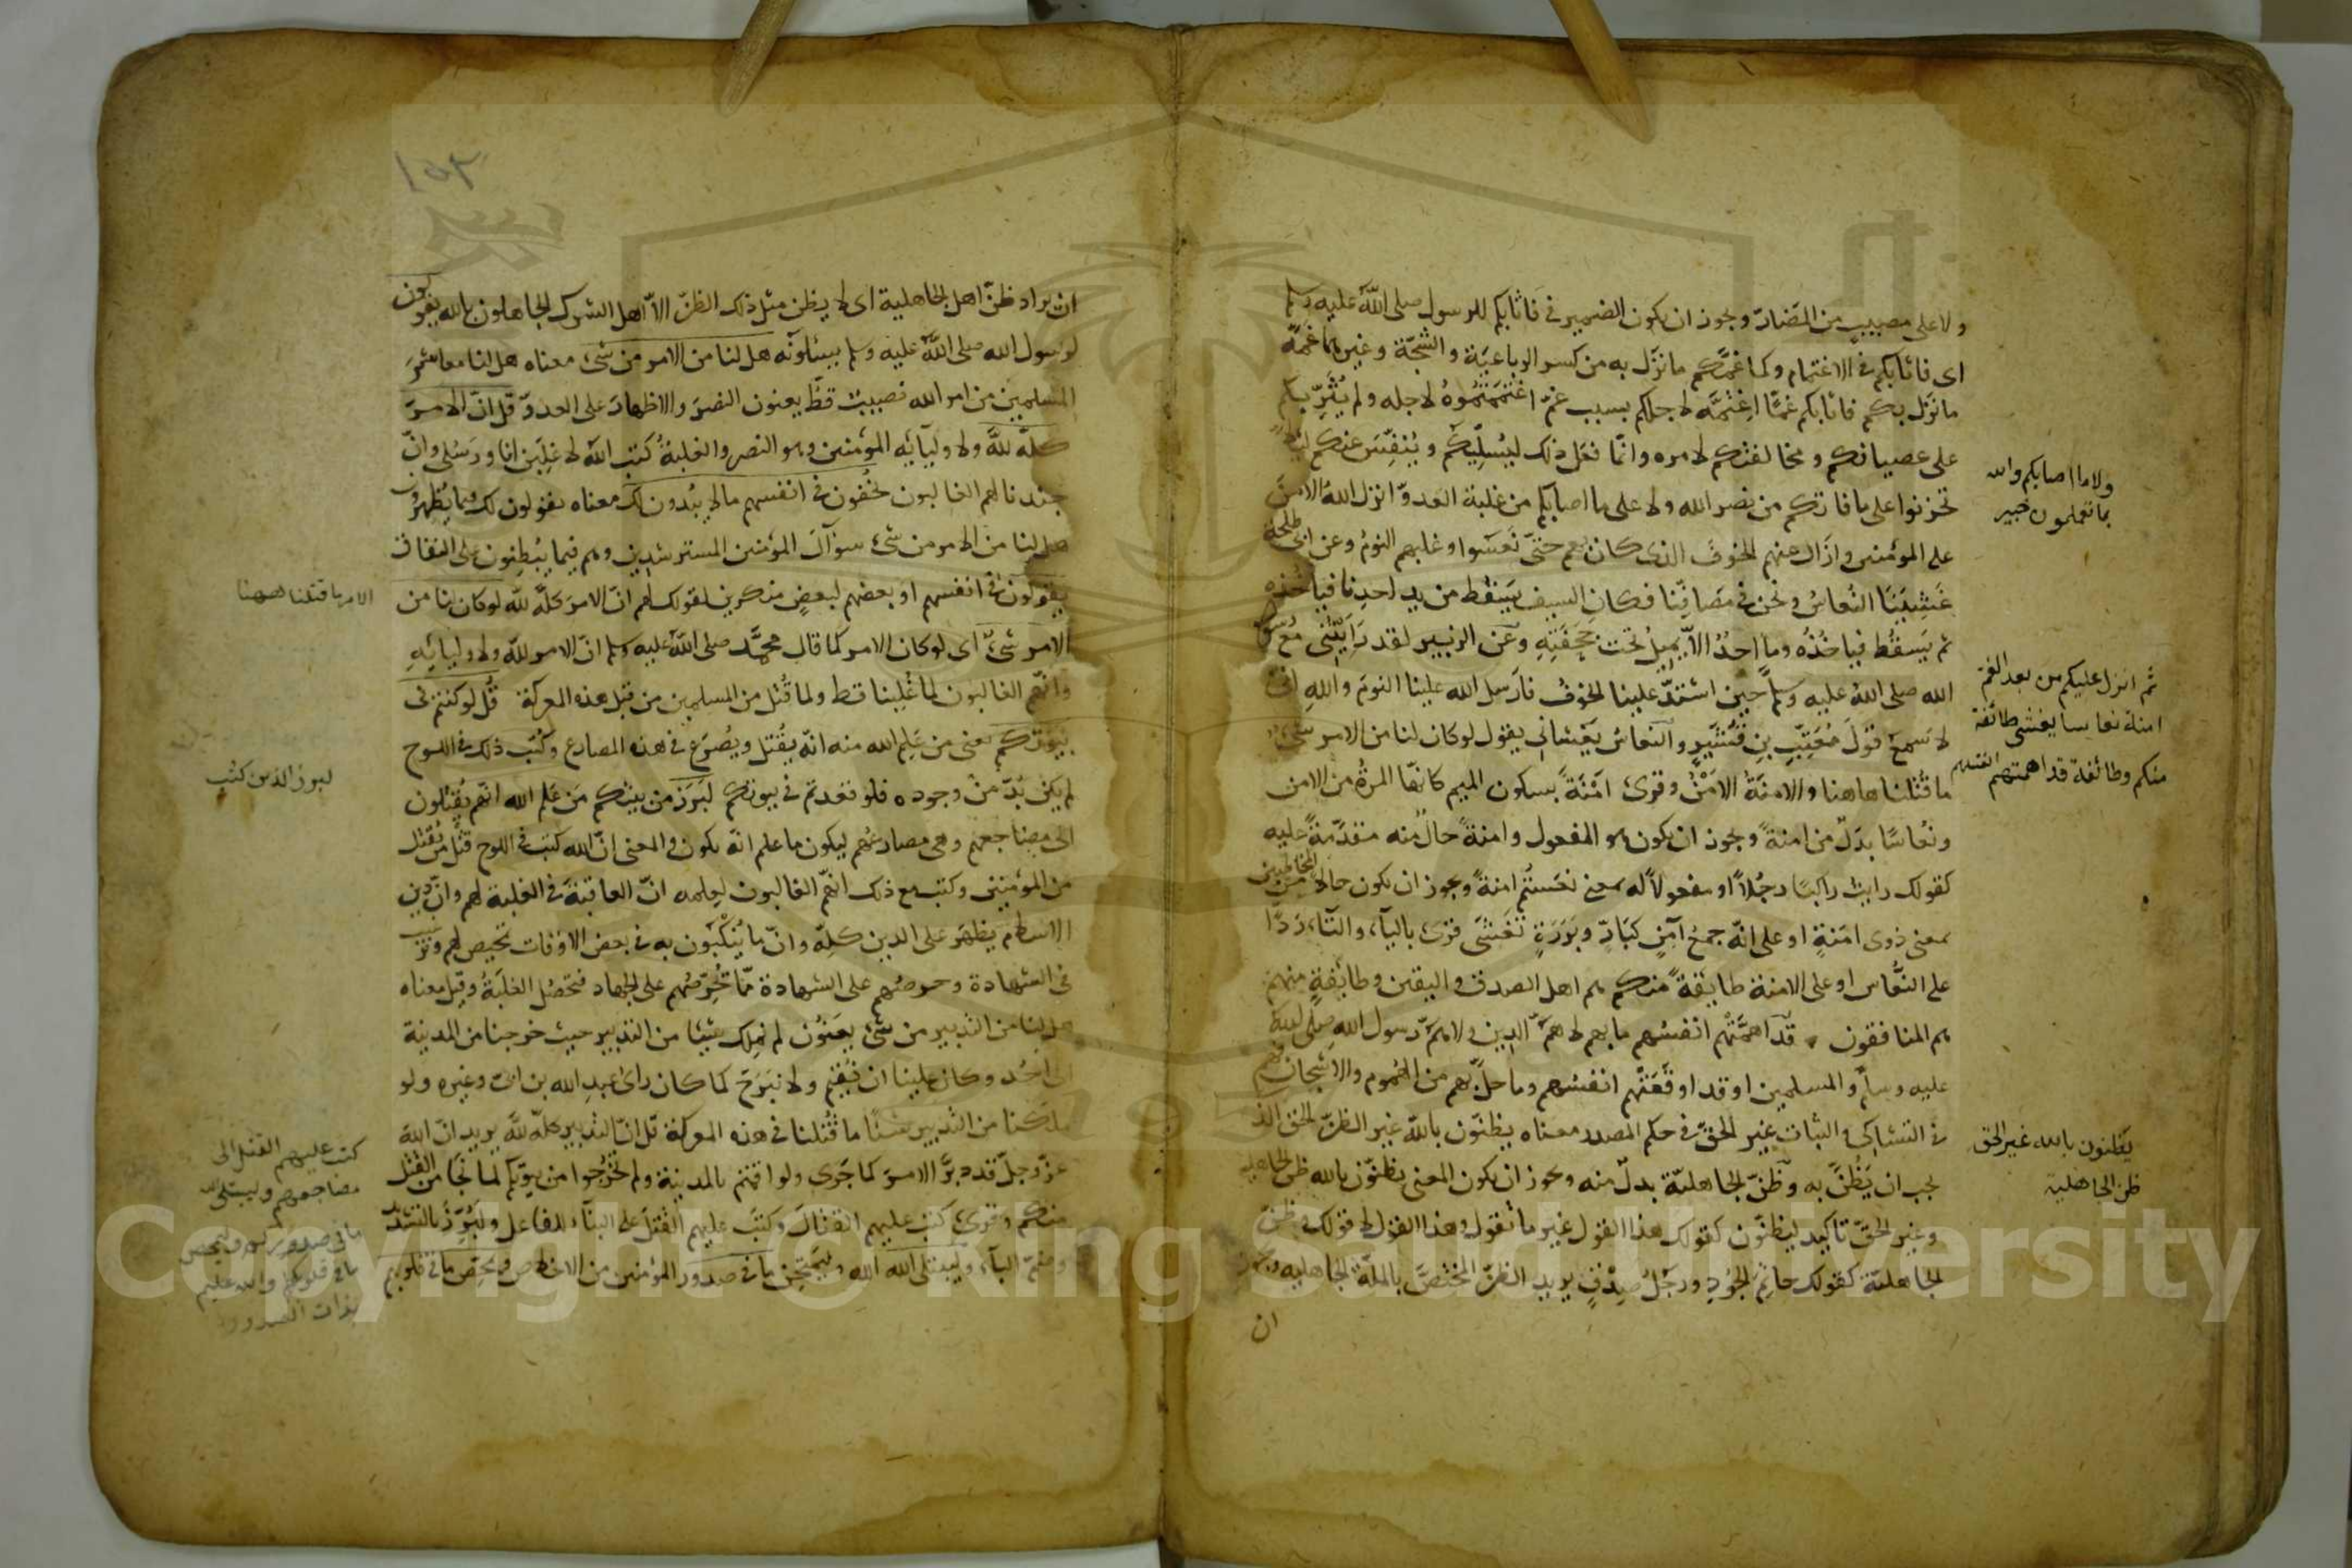 ولا على مصيب من المضار ويجوز ان يكون الضمير في فاثابكم للرسول صلى الله عليه وسلم
اى فاثابكم في الاغتمام وكما غمكم ما نزل به من كسر الرباعية والشجة وغيرهما غمه
ما نزل بكم فاثابكم غما اغتمه لاجلكم بسبب غم اغتممتموه لاجله ولم يثربكم
على عصيانكم ومخالفتكم لامره وانما فعل ذلك ليسليكم وينفس عنكم ليلا
تحزنوا على ما فاتكم من نصر الله ولا على ما اصابكم من غلبة العدو انزل الله الامن
على المؤمنين وازال عنهم الخوف الذى كان بهم حتى نعسوا وغلبهم النوم وعن ابى طلحة
غشينا النعاس ونحن في مصافنا فكان السيف يسقط من يد احدنا فياخذه
ثم يسقط فياخذه وما احد الا يميل تحت حجفته وعن الزبير لقد رايتنى مع رسول
الله صلى الله عليه وسلم حين اشتد علينا الخوف فارسل الله علينا النوم والله انى
لا سمع قول معتب بن قشير والنعاس يغشانى يقول لو كان لنا من الامر شىء
ما قتلنا هاهنا والامنة الامن وقرئ امنة بسكون الميم كانها المرة من الامن
ونعاسا بدل من امنة ويجوز ان يكون هو المفعول وامنة حال منه متقدمة عليه
كقولك رايت راكبا رجلا او مفعولا له بمعنى نعستم امنة ويجوز ان يكون حالا من المخاطبين
بمعنى ذوى امنة او على انه جمع آمن كبار وبررة تغشى قرئ بالياء والتاء ردا
على النعاس او على الامنة طايفة منكم هم اهل الصدق واليقين وطايفة منهم
هم المنافقون قد اهمتهم انفسهم ما بهم الا هم الدين ولا هم رسول الله صلى الله
عليه وسلم والمسلمين او قد اوقعتهم انفسهم وما حل بهم من الهموم والاشجان فهم
في التشاكى والتباث غير الحق في حكم المصدر معناه يظنون بالله غير الظن الحق الذى
يجب ان يظن به وظن الجاهلية بدل منه ويجوز ان يكون المعنى يظنون بالله ظن الجاهلية
وغير الحق تاكيد ليظنون كقولك هذا القول غير ما تقول وهذا القول لا قولك وظن
الجاهلية كقولك حاتم الجود ورجل صدق يريد الظن المختص بالملة الجاهلية ويجوز
ان
ولا ما اصابكم والله
بما تعملون خبير
ثم انزل عليكم من بعد الغم
امنة نعاسا يغشى طائفة
منكم وطائفة قد اهمتهم انفسهم
يظنون بالله غير الحق
ظن الجاهلية
١٥٢
ان يراد ظن اهل الجاهلية اى لا يظن مثل ذلك الظن الا اهل الشرك الجاهلون بالله يقولون
لرسول الله صلى الله عليه وسلم يسئلونه هل لنا من الامر من شىء معناه هل لنا معاشر
المسلمين من امر الله نصيب قط يعنون النصر والاظهار على العدو قل ان الامر
كله لله ولاوليائه المؤمنين وهو النصر والغلبة كتب الله لاغلبن انا ورسلى وان
جندنا لهم الغالبون يخفون في انفسهم ما لا يبدون لك معناه يقولون لك فيما يظهرون
هل لنا من الامر من شىء سؤال المؤمنين المسترشدين وهم فيما يبطنون على النفاق
يقولون في انفسهم او بعضهم لبعض منكرين لقولك لهم ان الامر كله لله لو كان لنا من
الامر شىء اى لو كان الامر كما قال محمد صلى الله عليه وسلم ان الامر لله ولاوليائه
وانهم الغالبون لما غلبنا قط ولما قتل من المسلمين من قتل هذه المعركة قل لو كنتم في
بيوتكم يعنى من علم الله منه انه يقتل ويصرع في هذه المصارع وكتب ذلك في اللوح
لم يكن بد من وجوده فلو قعدتم في بيوتكم لبرز من بينكم من علم الله انهم يقتلون
الى مضاجعهم وهى مصارعهم ليكون ما علم انه يكون والمعنى ان الله كتب في اللوح قتل من يقتل
من المؤمنين وكتب مع ذلك انهم الغالبون لعلمه ان العاقبة في الغلبة لهم وان دين
الاسلام يظهر على الدين كله وان ما ينكبون به في بعض الاوقات تمحيص لهم وترغيب
في الشهادة وحرصهم على الشهادة مما يحرضهم على الجهاد فتحصل الغلبة وقيل معناه
هل لنا من التدبير من شىء يعنون لم نملك شيئا من التدبير حيث خرجنا من المدينة
الى احد وكان علينا ان نقيم ولا نبرح كما كان راى عبد الله بن ابى وغيره ولو
ملكنا من التدبير شيئا ما قتلنا في هذه المعركة قل ان التدبير كله لله يريد ان الله
عز وجل قد دبر الامر كما جرى ولو اقمتم بالمدينة ولم تخرجوا من بيوتكم لما نجا من القتل
منكم وقرئ كتب عليهم القتال وكتب عليهم القتل على البناء للفاعل ولبرز بالتشديد
وضم الباء وليبتلى الله وليمتحن ما في صدور المؤمنين من الاخلاص ويمحص ما في قلوبهم
الامر ما قتلنا ههنا
لبرز الذين كتب
كتب عليهم القتل الى
مضاجعهم وليبتلى الله
ما في صدوركم وليمحص
ما في قلوبكم والله عليم
بذات الصدور
Copyright © King Saud University
1957